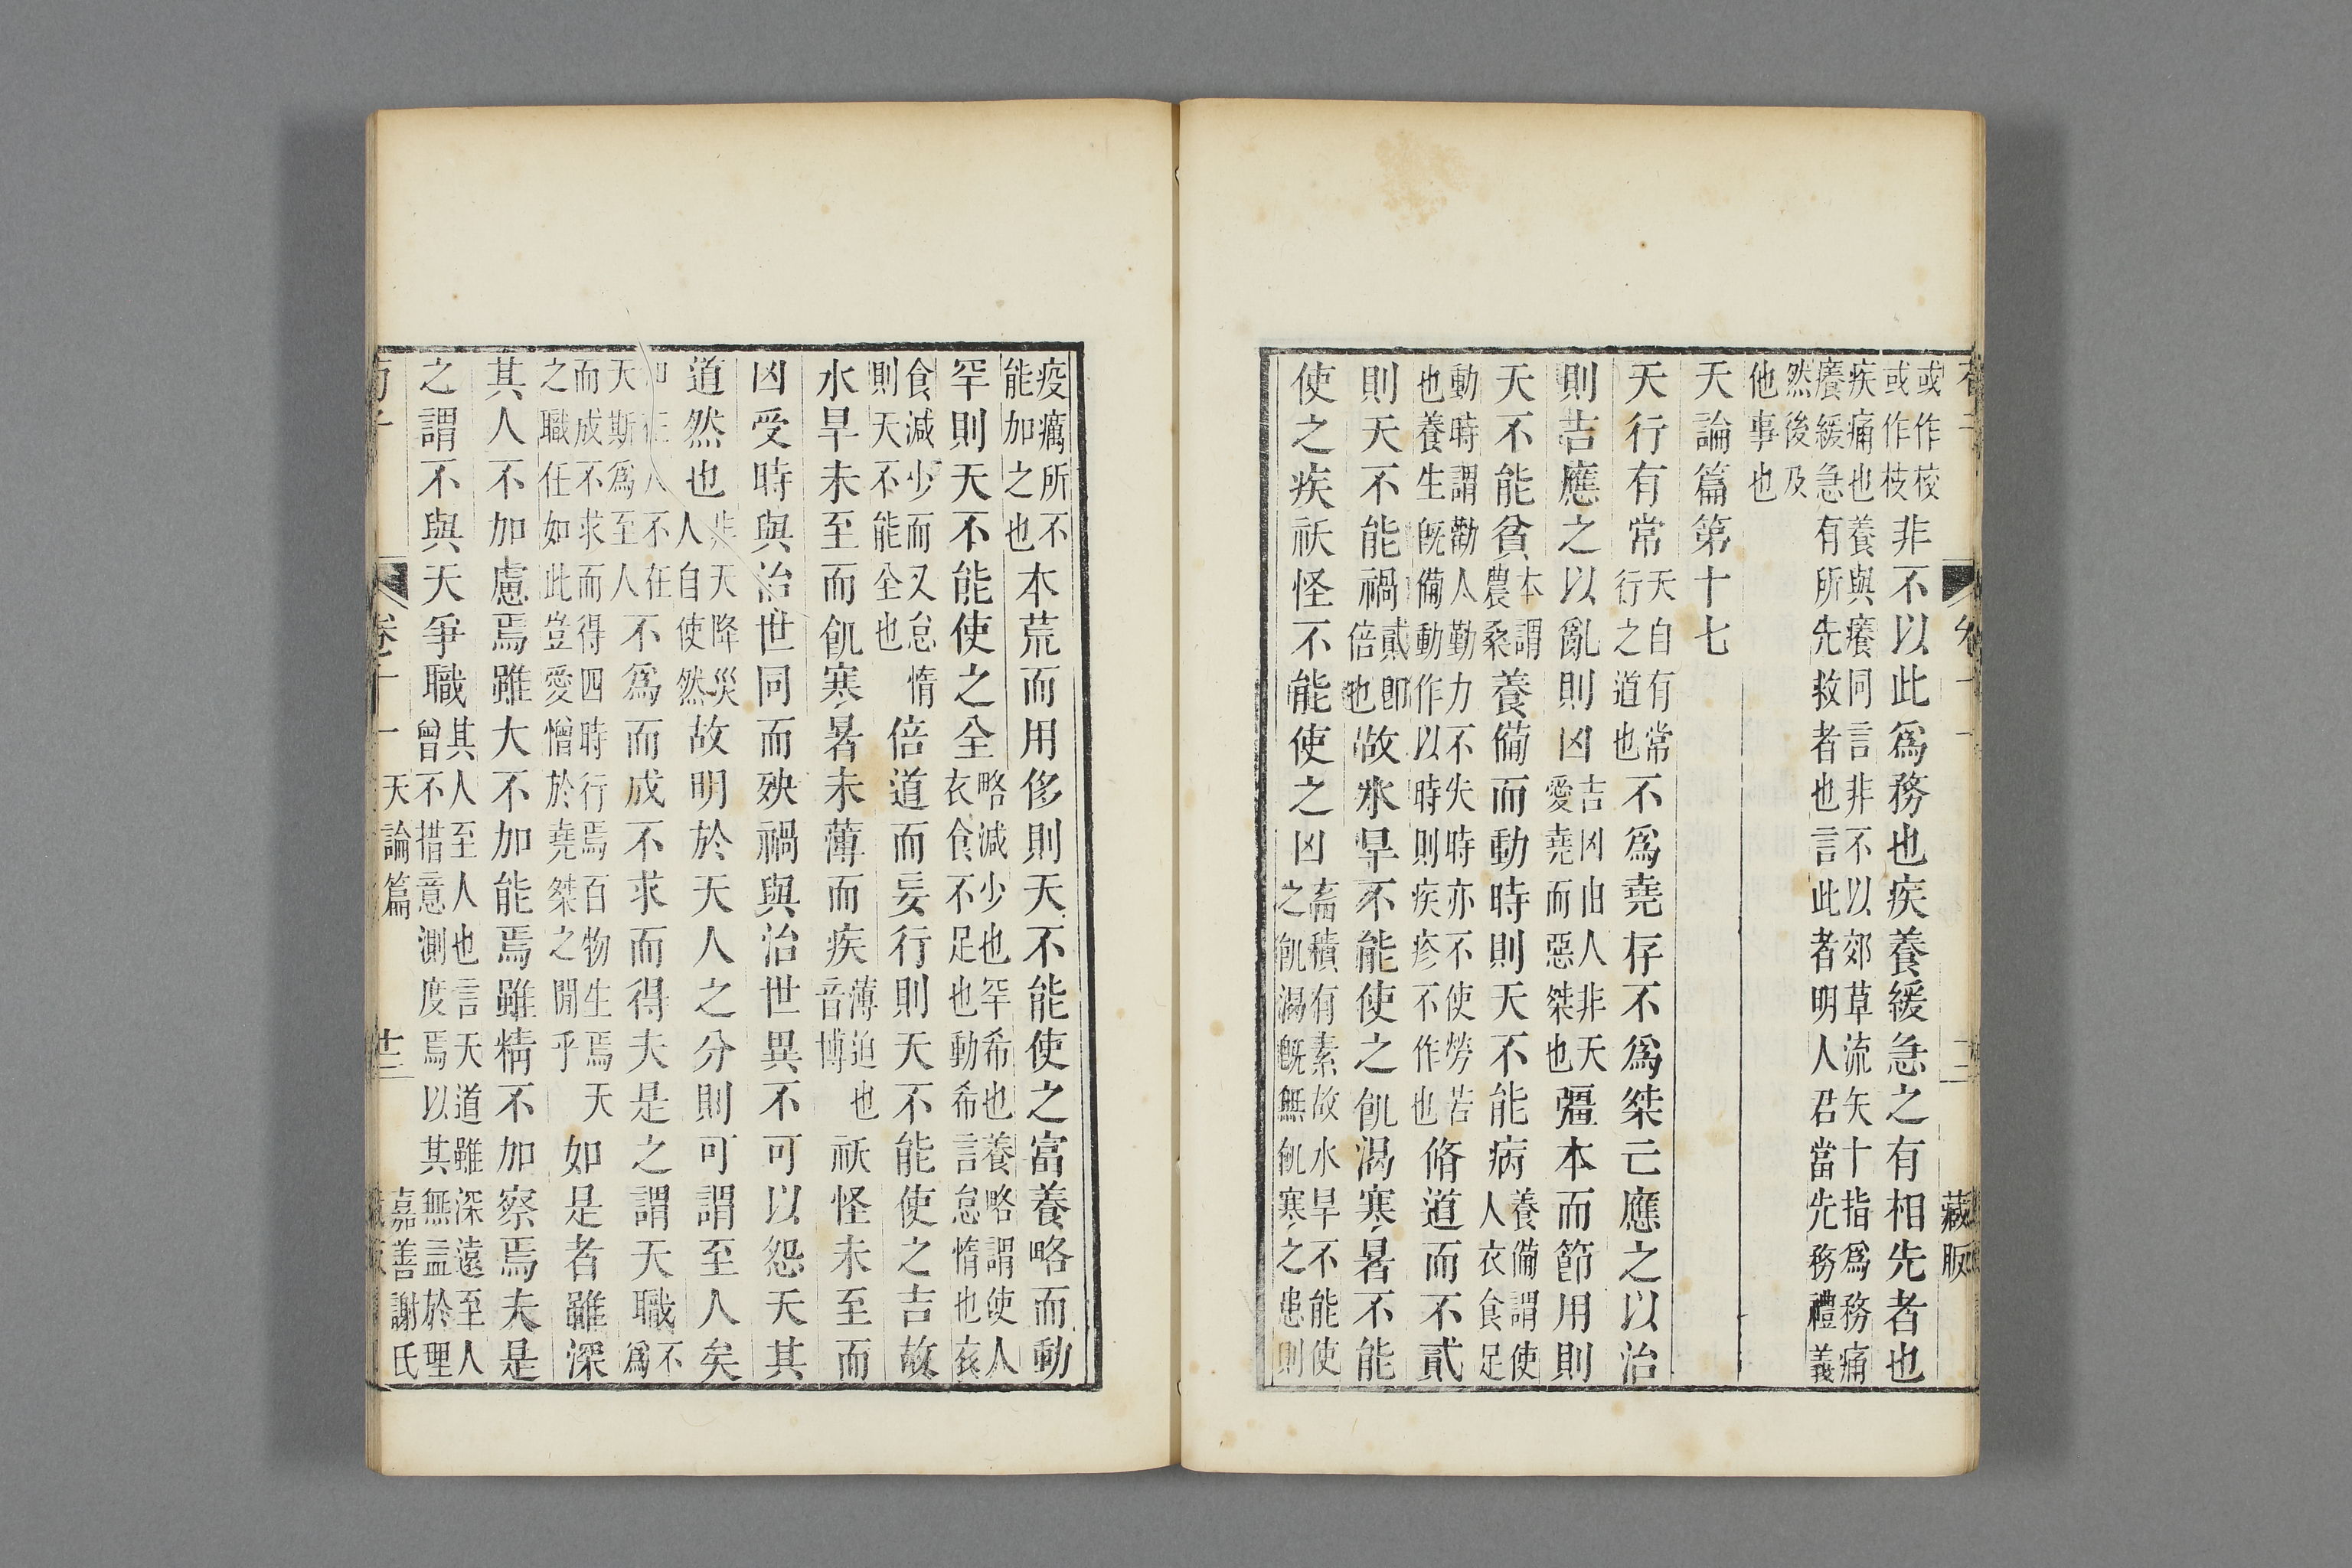 或作校或作枝非不以此爲務也疾養緩急之有相先者也
疾痛也養與癢同言非不以郊草流矢十指爲務痛
癢緩急有所先救者也言此者明人君當先務禮義
然後及
他事也
天論篇第十七
天行有常天自有常行之道也不爲堯存不爲桀亡應之以治
則吉應之以亂則凶吉凶由人非天愛堯而惡桀也彊本而節用則
天不能貧本謂農桑養備而動時則天不能病養備謂使人衣食足
動時謂勸人勤力不失時亦不使勞苦
也養生既備動作以時則疾疹不作也
脩道而不貳
則天不能禍貳即倍也故水旱不能使之飢渴寒暑不能
使之疾祅怪不能使之凶畜積有素故水旱不能使之飢渴既無飢寒之患則
藏版
疫癘所不能加之也本荒而用侈則天不能使之富養略而動
罕則天不能使之全略減少也罕希也養略謂使人衣食不足也動希言怠惰也衣
食減少而又怠惰則天不能全也倍道而妄行則天不能使之吉故
水旱未至而飢寒暑未薄而疾薄迫也音博祅怪未至而
凶受時與治世同而殃禍與治世異不可以怨天其
道然也非天降災人自使然故明於天人之分則可謂至人矣
不在天斯爲至人不爲而成不求而得夫是之謂天職不爲
而成不求而得四時行焉百物生焉天
之職任如此豈愛憎於堯桀之閒乎
如是者雖深
其人不加慮焉雖大不加能焉雖精不加察焉夫是
之謂不與天爭職其人至人也言天道雖深遠至人曾不措意測度焉以其無益於理
荀子 卷十一 天論篇 十二 嘉善謝氏